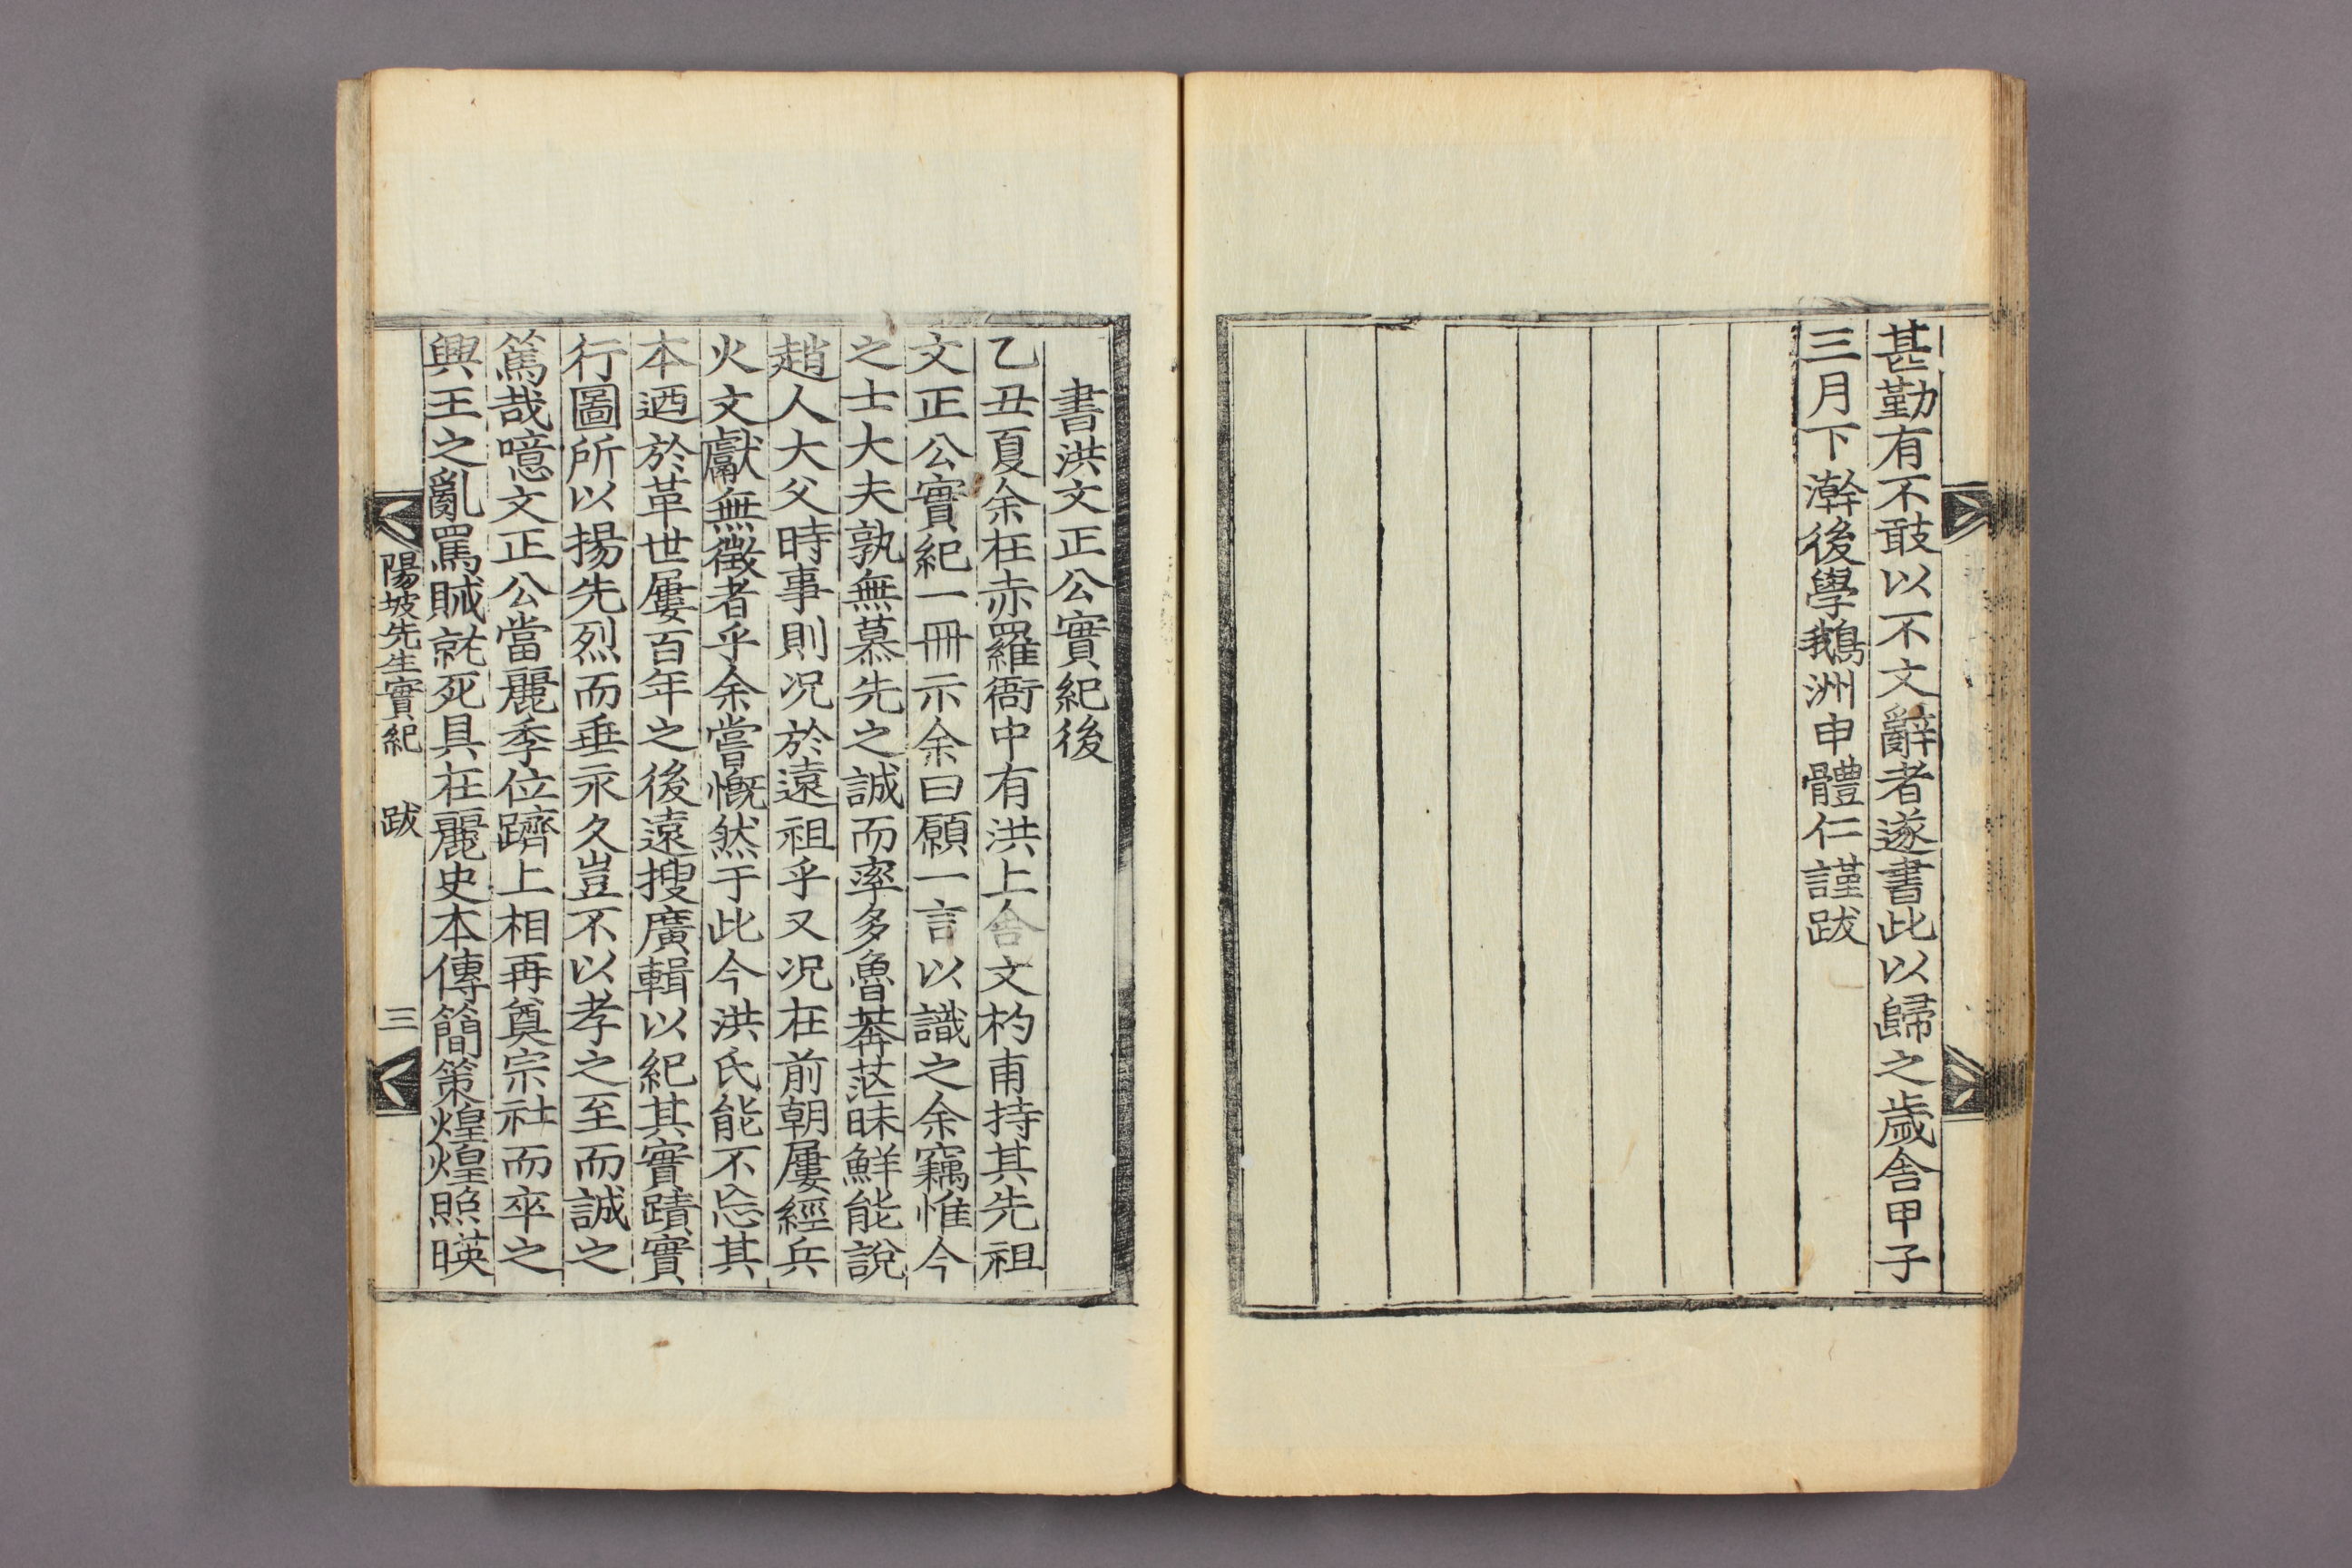 甚勤有不敢以不文辭者遂書此以歸之歲舍甲子
三月下澣後學鵝洲申體仁謹跋
書洪文正公實紀後
乙丑夏余在赤羅衙中有洪上舍文杓甫持其先祖
文正公實紀一冊示余曰願一言以識之余竊惟今
之士大夫孰無慕先之誠而率多魯莽茫昧鮮能說
趙人大父時事則况於遠祖乎又况在前朝屢經兵
火文獻無徵者乎余嘗慨然于此今洪氏能不忘其
本迺於革世屢百年之後遠搜廣輯以紀其實蹟實
行圖所以揚先烈而垂永久豈不以孝之至而誠之
篤哉噫文正公當麗季位躋上相再奠宗社而卒之
興王之亂罵賊就死具在麗史本傳簡策煌煌照暎
陽坡先生實紀 跋 三